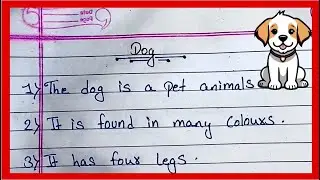 Dog
1) The dog is a pet animals
2) It is found in many colours.
3) It has four legs.